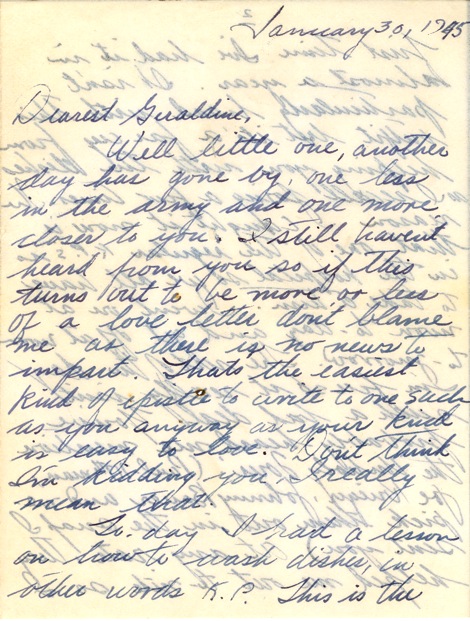 January 30, 1945
Dearest Geraldine,
Well little one, another
day has gone by, one less
in the army and one more
closer to you. I still havent
heard from you so if this
turns out to be more or less
of a love letter dont blame
me as there is no news to
impart. Thats the easiest
kind of epistle to write to one such
as you anyway as your kind
is easy to love. Don't think
I'm kidding you, I really
mean that.
To-day I had a lesson
on how to wash dishes, in
other words K.P. This is the